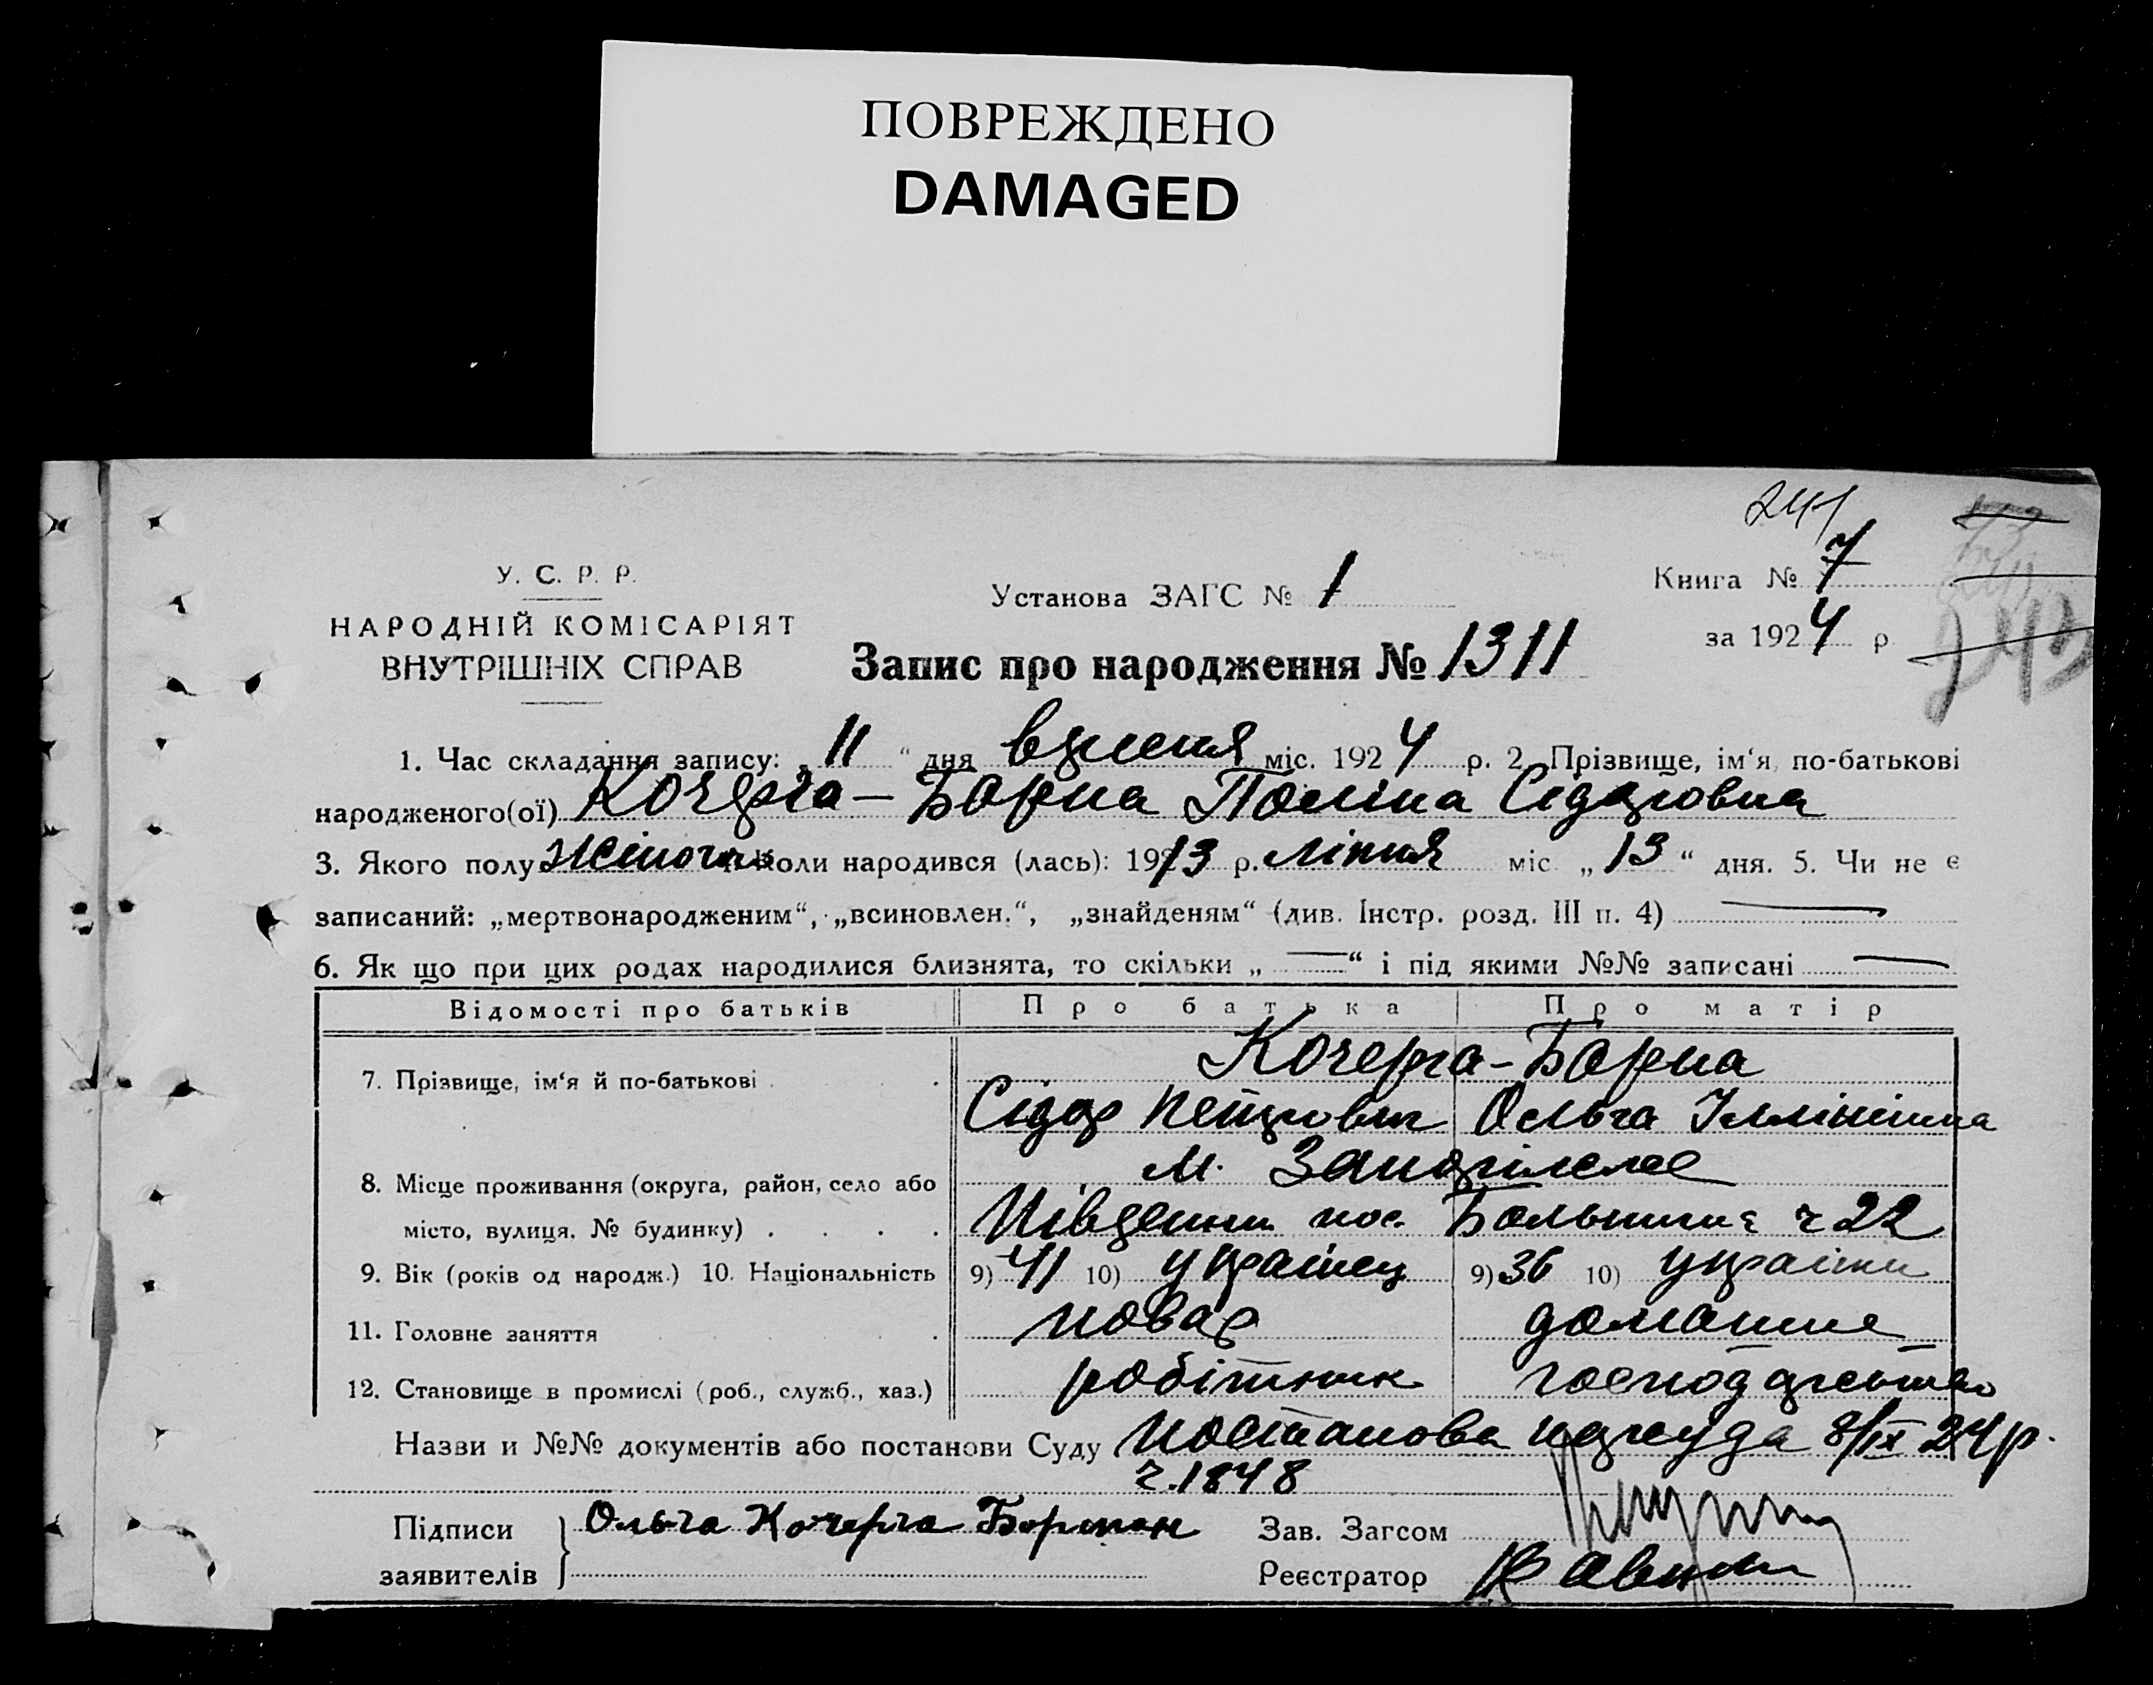 ПОВРЕЖДЕНО
DAMAGED
241
У. С. Р. Р.
НАРОДНІЙ КОМІСАРІЯТ
ВНУТРІШНІХ СПРАВ
Установа ЗАГС № 1
Книга № 7
за 1924 р
Запис про народження № 1311
1. Час складання запису: „11“ дня вересня міс. 1924 р. 2. Прізвище, ім‘я, по-батькові
народженого(ої) Кочерга-Борна Поліна Сідоровна
3. Якого полу жіноча Коли народився (лась): 1913 р. Ліпня міс. „13“ дня. 5. Чи не є
записаний: „мертвонародженим“, „всиновлен.“, „знайденям“ (див. Інстр. розд. III п. 4) —
6. Як що при цих родах народилися близнята, то скільки „—“ і під якими №№ записані —
Відомості про батьків Про батька Про матір
7. Прізвище, ім‘я й по-батькові Кочерга-Борна
Сідор Петрович Ольга Іллінішна
м. Запоріжжє
8. Місце проживання (округа, район, село або
місто, вулиця, № будинку) Південни пос. Больнична ч 22
9. Вік (років од народж.) 10. Національність 9) 41 10) українец 9) 36 10) українки
11. Головне заняття повар домашне
12. Становище в промислі (роб., служб., хаз.) робітник господарство
Назви и №№ документів або постанови Суду Постанова нарсуда 8/IX 24 р.
ч. 1848
Підписи Ольга Кочерга Зав. Загсом
заявителів Реєстратор